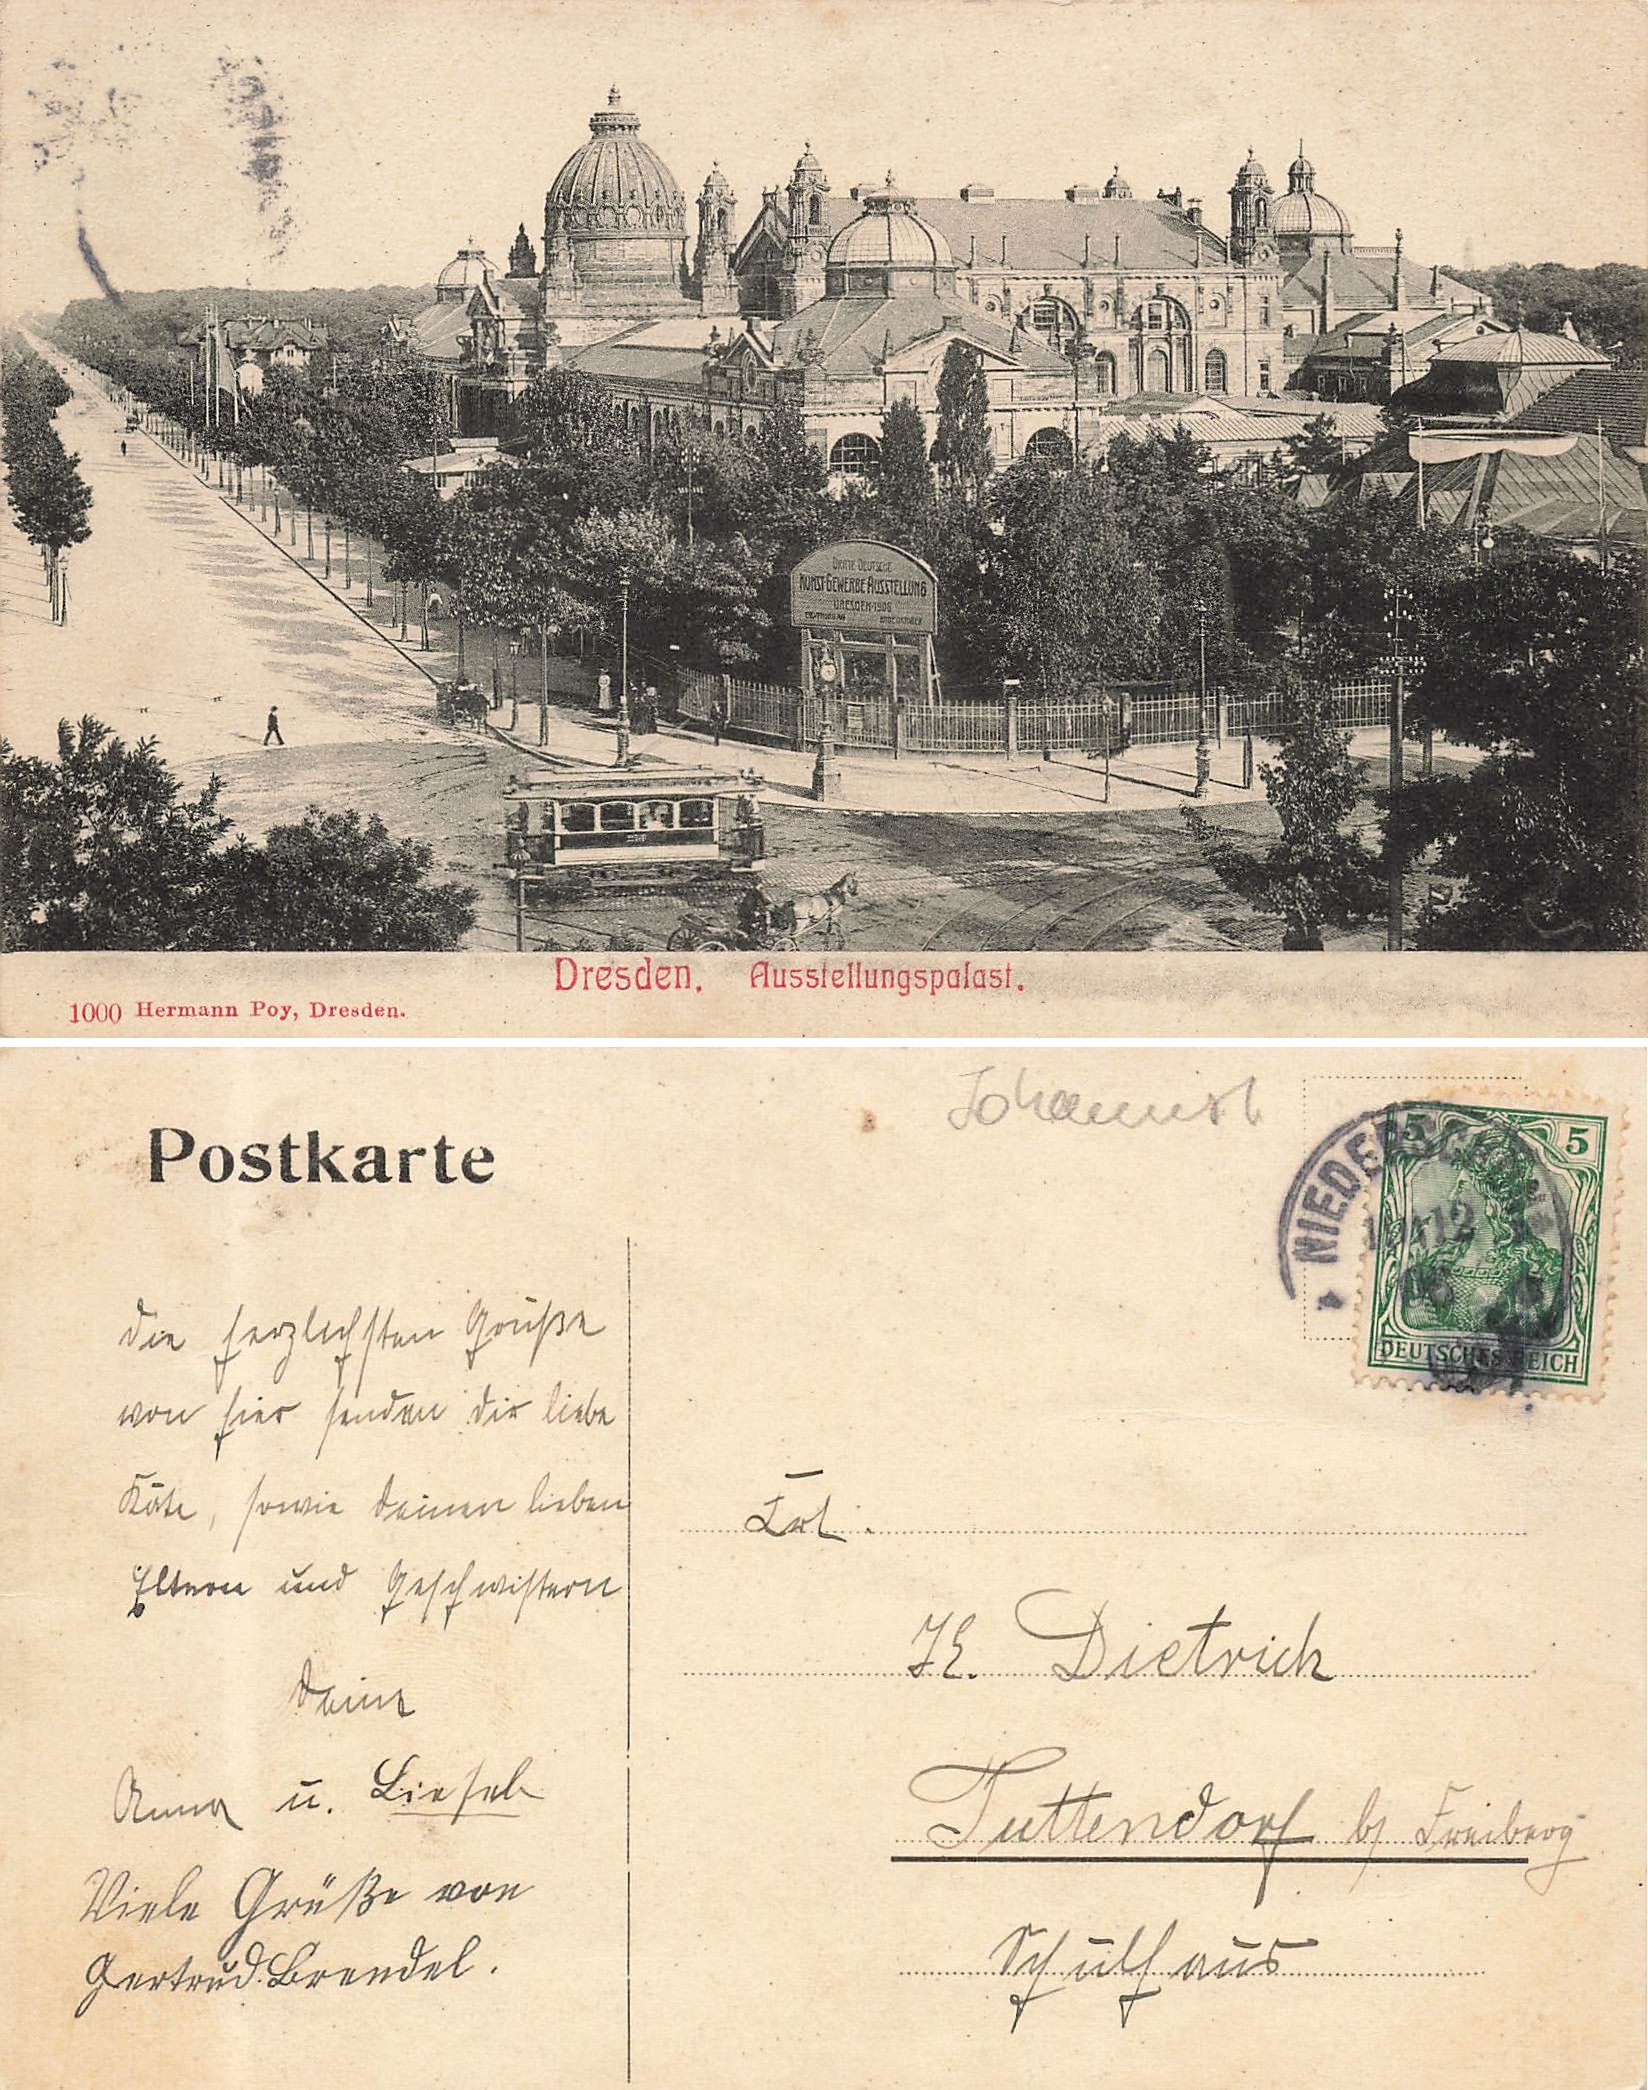 Dritte Deutsche
Kunst-Gewerbe-Ausstellung
Dresden-1906
Dresden. Ausstellungspalast.
1000 Hermann Poy, Dresden.
Postkarte
5 5
NIEDER
12
06
DEUTSCHES REICH
Die herzlichsten Grüße
von hier senden dir liebe
Käte, sowie deinen lieben
Eltern und Geschwistern
Deine
Anna u. Liesel
Viele Grüße von
Gertrud Brendel.
Frl.
K. Dietrich
Tuttendorf b/ Freiberg
Schulhaus